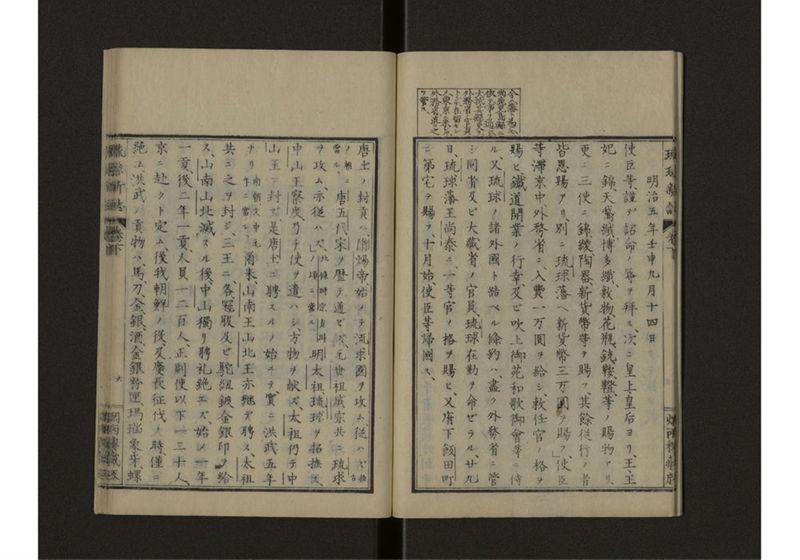 琉球新誌 巻下
明治五年壬申九月十四日
使臣等謹デ詔命ノ辱ヲ拜ス、次ニ皇上皇后ヨリ、王、王
妃ニ錦、天鵞絨、博多織、穀物、花瓶、銃、鞍鐙等ノ賜物アリ、
更ニ三使ニ錦綾、陶器、新貨幣等ヲ賜フ、其餘從行ノ者
皆恩賜アリ、別ニ琉球藩ヘ新貨幣三万圓ヲ賜フ、使臣
等滯京中外務省ニ入費一万圓ヲ給シ、敕任官ノ格ヲ
賜ヒ、鐵道開業ノ行幸及ビ吹上御苑和歌御會等ニ侍
ル、又琉球ノ諸外國ト結ベル條約ハ、盡ク外務省ニ管
シ、同省及ビ大藏省ノ官員、琉球在勤ヲ命ゼラル、廿九
日、琉球藩王尚泰ニ一等官ノ格ヲ賜ヒ、又府下飯田町
ニ第宅ヲ賜フ、十月始、使臣等歸國ス、
琉球新誌 巻下
唐土ノ封貢ハ、隋煬帝始メテ流求國ヲ攻ム、從ハズ
唐五代宋ヲ歴テ通ゼズ、元世祖成宗共ニ琉球
ヲ攻ム、亦從ハズ、明太祖琉球ヲ招撫ス、
中山王察度乃チ使ヲ遣ハシ、方物ヲ献ズ、太祖仍チ中
山王ニ封ズ、是唐土ニ聘スルノ始ニテ、實ニ洪武五年
ナリ、爾来山南王山北王亦継デ聘ス、太祖
共ニ之ヲ封ジ、三王ニ各冠服及ビ駝紐鍍金銀印ヲ給
ス、山南山北滅スル後、中山獨リ聘礼絶エズ、始メ一年
一貢、後二年一貢、人員一二百人、正副使以下一二十人、
京ニ赴クト定ム、後我朝鮮ノ役、及ビ慶長征伐ノ時、僅ニ
絶ユ、洪武ノ貢物ハ、馬、刀、金銀酒、金銀粉匣、瑪瑙、象牙、螺